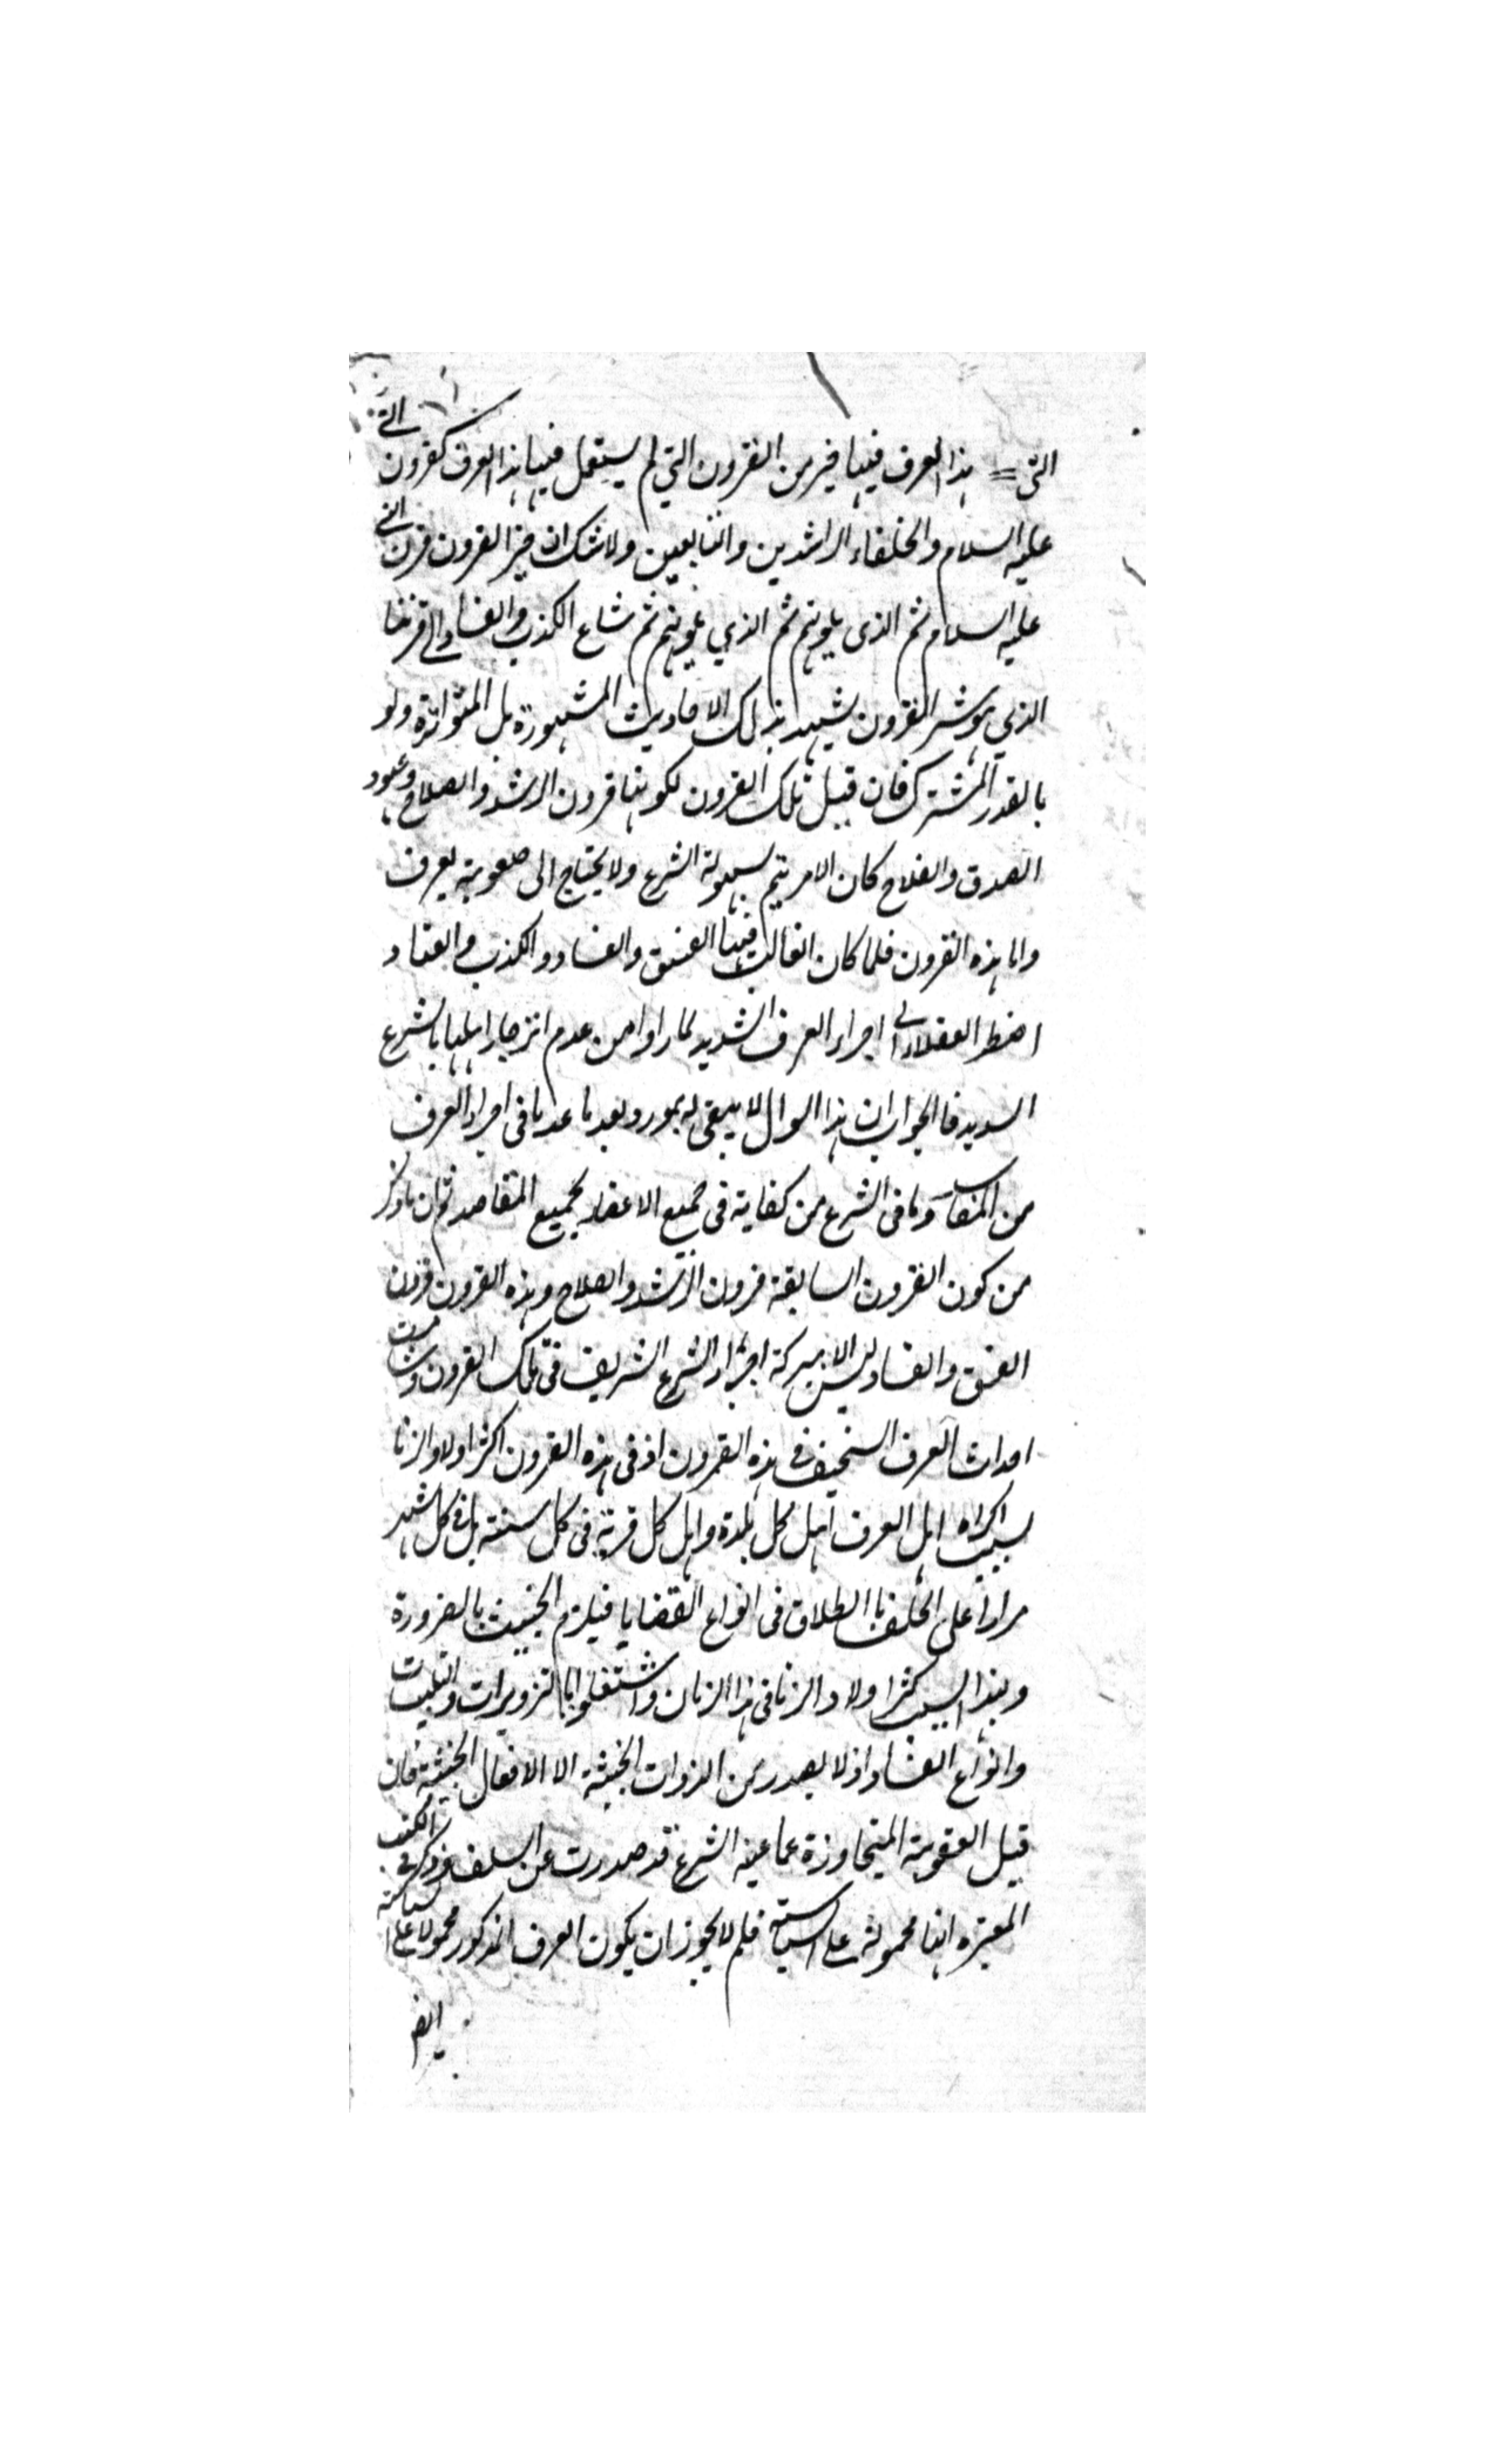 التى هذا العرف فيها خير من القرون التي لم يستعمل فيها هذا العرف كقرون النبي
عليه السلام والخلفاء الراشدين والتابعين ولا شك ان خير القرون قرن النبي
عليه السلام ثم الذى يلونهم ثم الذي يلونهم ثم شاع الكذب والفساد الى قرننا
الذي هو شر القرون يشهد بذلك الاحاديث المشهورة بل المتواترة ولو
بالقدر المشترك فان قيل تلك القرون لكونها قرون الرشد والصلاح وعهود
الصدق والفلاح كان الامر يتم بسهولة الشرع ولا يحتاج الى صعوبة يعرف
واما هذه القرون فلما كان الغالب فيها الفسق والفساد والكذب والعناد
اضطر العقلاء الى اجراء العرف الشديد لما راوا من عدم انزجار اهلها بالشرع
السديد فالجواب ان هذا السوال لا يبقى له مورد بعد ما عدنا فى اجراء العرف
من المفاسد وما فى الشرع من كفاية فى جميع الاعصار لجميع المقاصد ثم ان ما ذكر
من كون القرون السابقة قرون الرشد والصلاح وهذه القرون قرون
الفسق والفساد ليس الا ببركة اجراء الشرع الشريف فى تلك القرون وشامت
احداث العرف السخيف فى هذه القرون اذ فى هذه القرون اكثر اولاد الزنا
بسبب اكراه اهل العرف اهل كل بلدة واهل كل قرية فى كل سنة بل فى كل شهر
مرارا على الحلف بالطلاق فى انواع القضايا فيلزم الحنث بالضرورة
وبهذا السبب كثر اولاد الزنا فى هذا الزمان واشتغلوا بالتزويرات والتلبيسات
وانواع الفساد اذ لا يصدر من الذوات الخبيثة الا الافعال الخبيثة فان
قيل العقوبة المتجاوزة عما عينه الشرع قد صدرت عن السلف وذكر فى الكتب
المعتبره انها محمولة على السياسة فلم لا يجوز ان يكون العرف المذكور محمولا على السياسة
ايضا